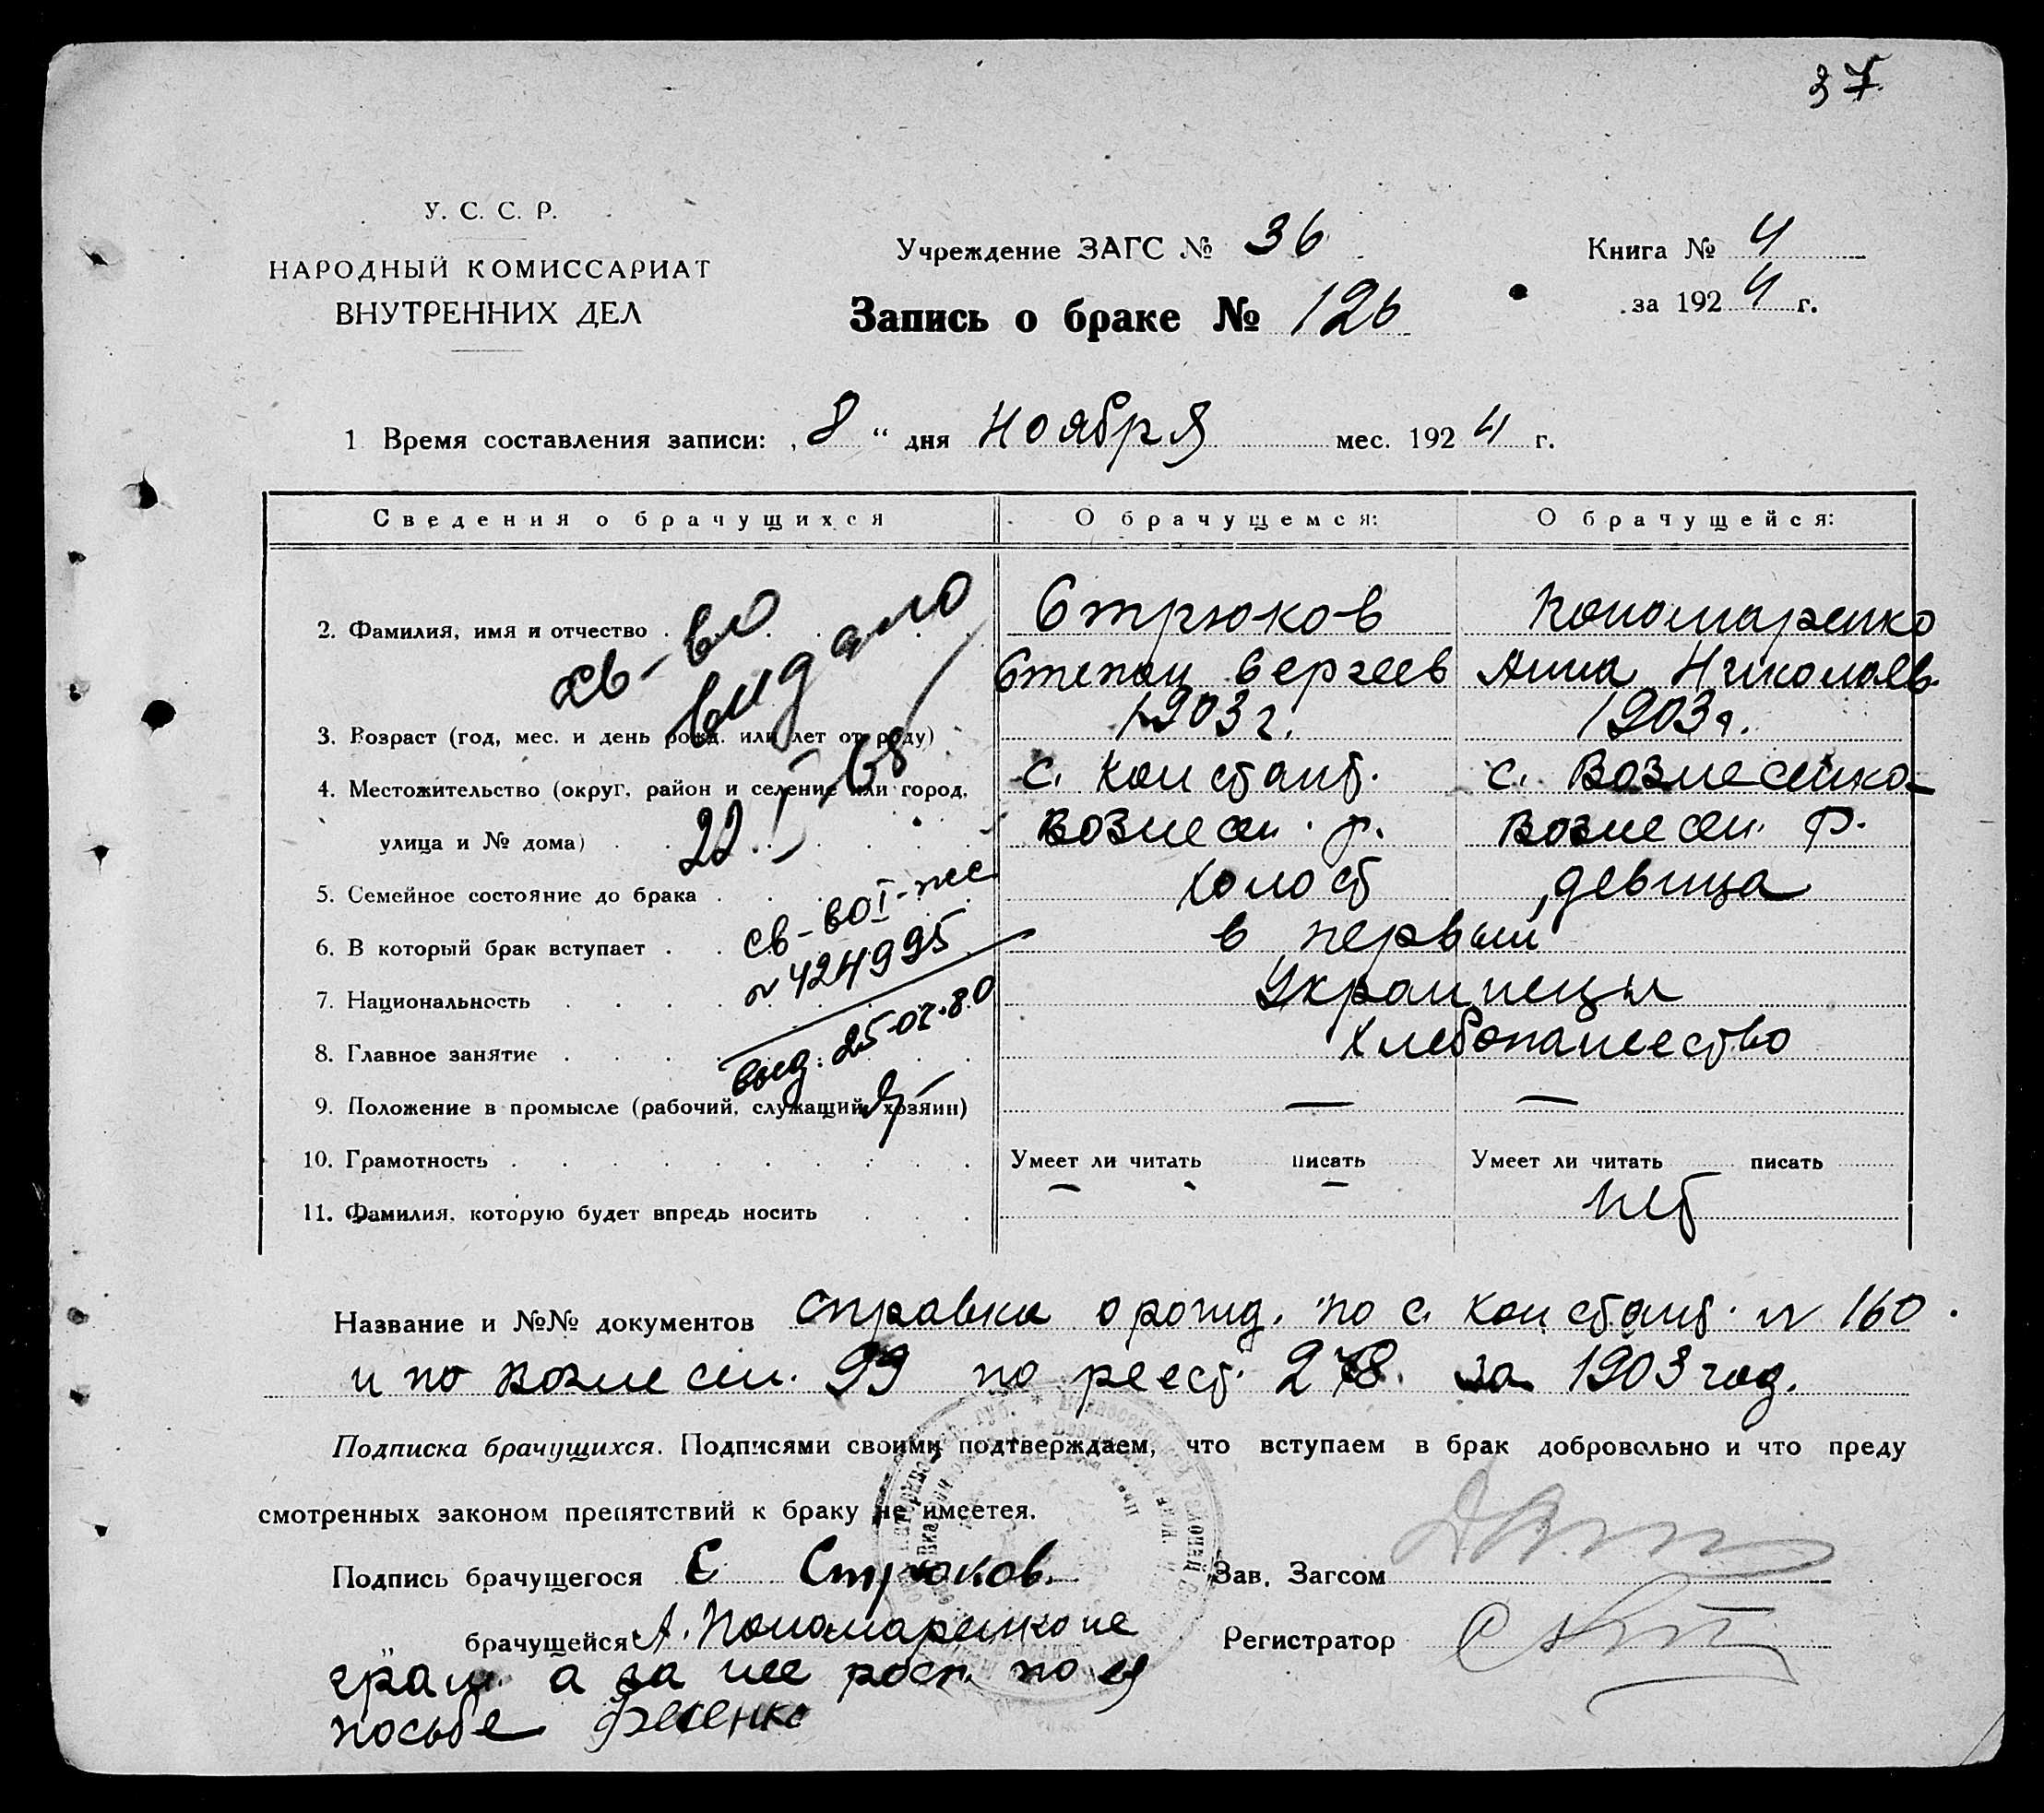 37
У. С. С. Р.
НАРОДНЫЙ КОМИССАРИАТ
ВНУТРЕННИХ ДЕЛ
Учреждение ЗАГС № 36
Запись о браке № 126
Книга № 4
за 1924 г.
1 Время составления записи: „8“ дня Ноября мес. 1924 г.
Сведения о брачущихся О брачущемся: О брачущейся:
2. Фамилия, имя и отчество Стрюков Пономаренко
Степан Сергеев Анна Николаев.
3. Возраст (год, мес. и день рожд. или лет от роду) 1903 г. 1903 г.
4. Местожительство (округ, район и селение или город, с. Констант. с. Вознесенка
улица и № дома) Вознесен. р. Вознесен. р.
5. Семейное состояние до брака холост девица
6. В который брак вступает в первый
7. Национальность Украинецы
8. Главное занятие Хлебопашество
9. Положение в промысле (рабочий, служащий, хозяин) — —
10. Грамотность Умеет ли читать писать Умеет ли читать писать
11. Фамилия, которую будет впредь носить нет
св-во
видано
22.I-68
св-во I-же
№ 424995
выд. 25.02.80
Название и №№ документов справка о рожд. по с. Констант. № 160.
и по Вознесен. 99 по реест. 278. за 1903 год.
Подписка брачущихся. Подписями своими подтверждаем, что вступаем в брак добровольно и что преду
смотренных законом препятствий к браку не имеется.
Подпись брачущегося С Стрюков. Зав. Загсом
„ брачущейся А. Пономаренко не Регистратор
грам. а за нее росп. по ея
прозьбе Фесенко